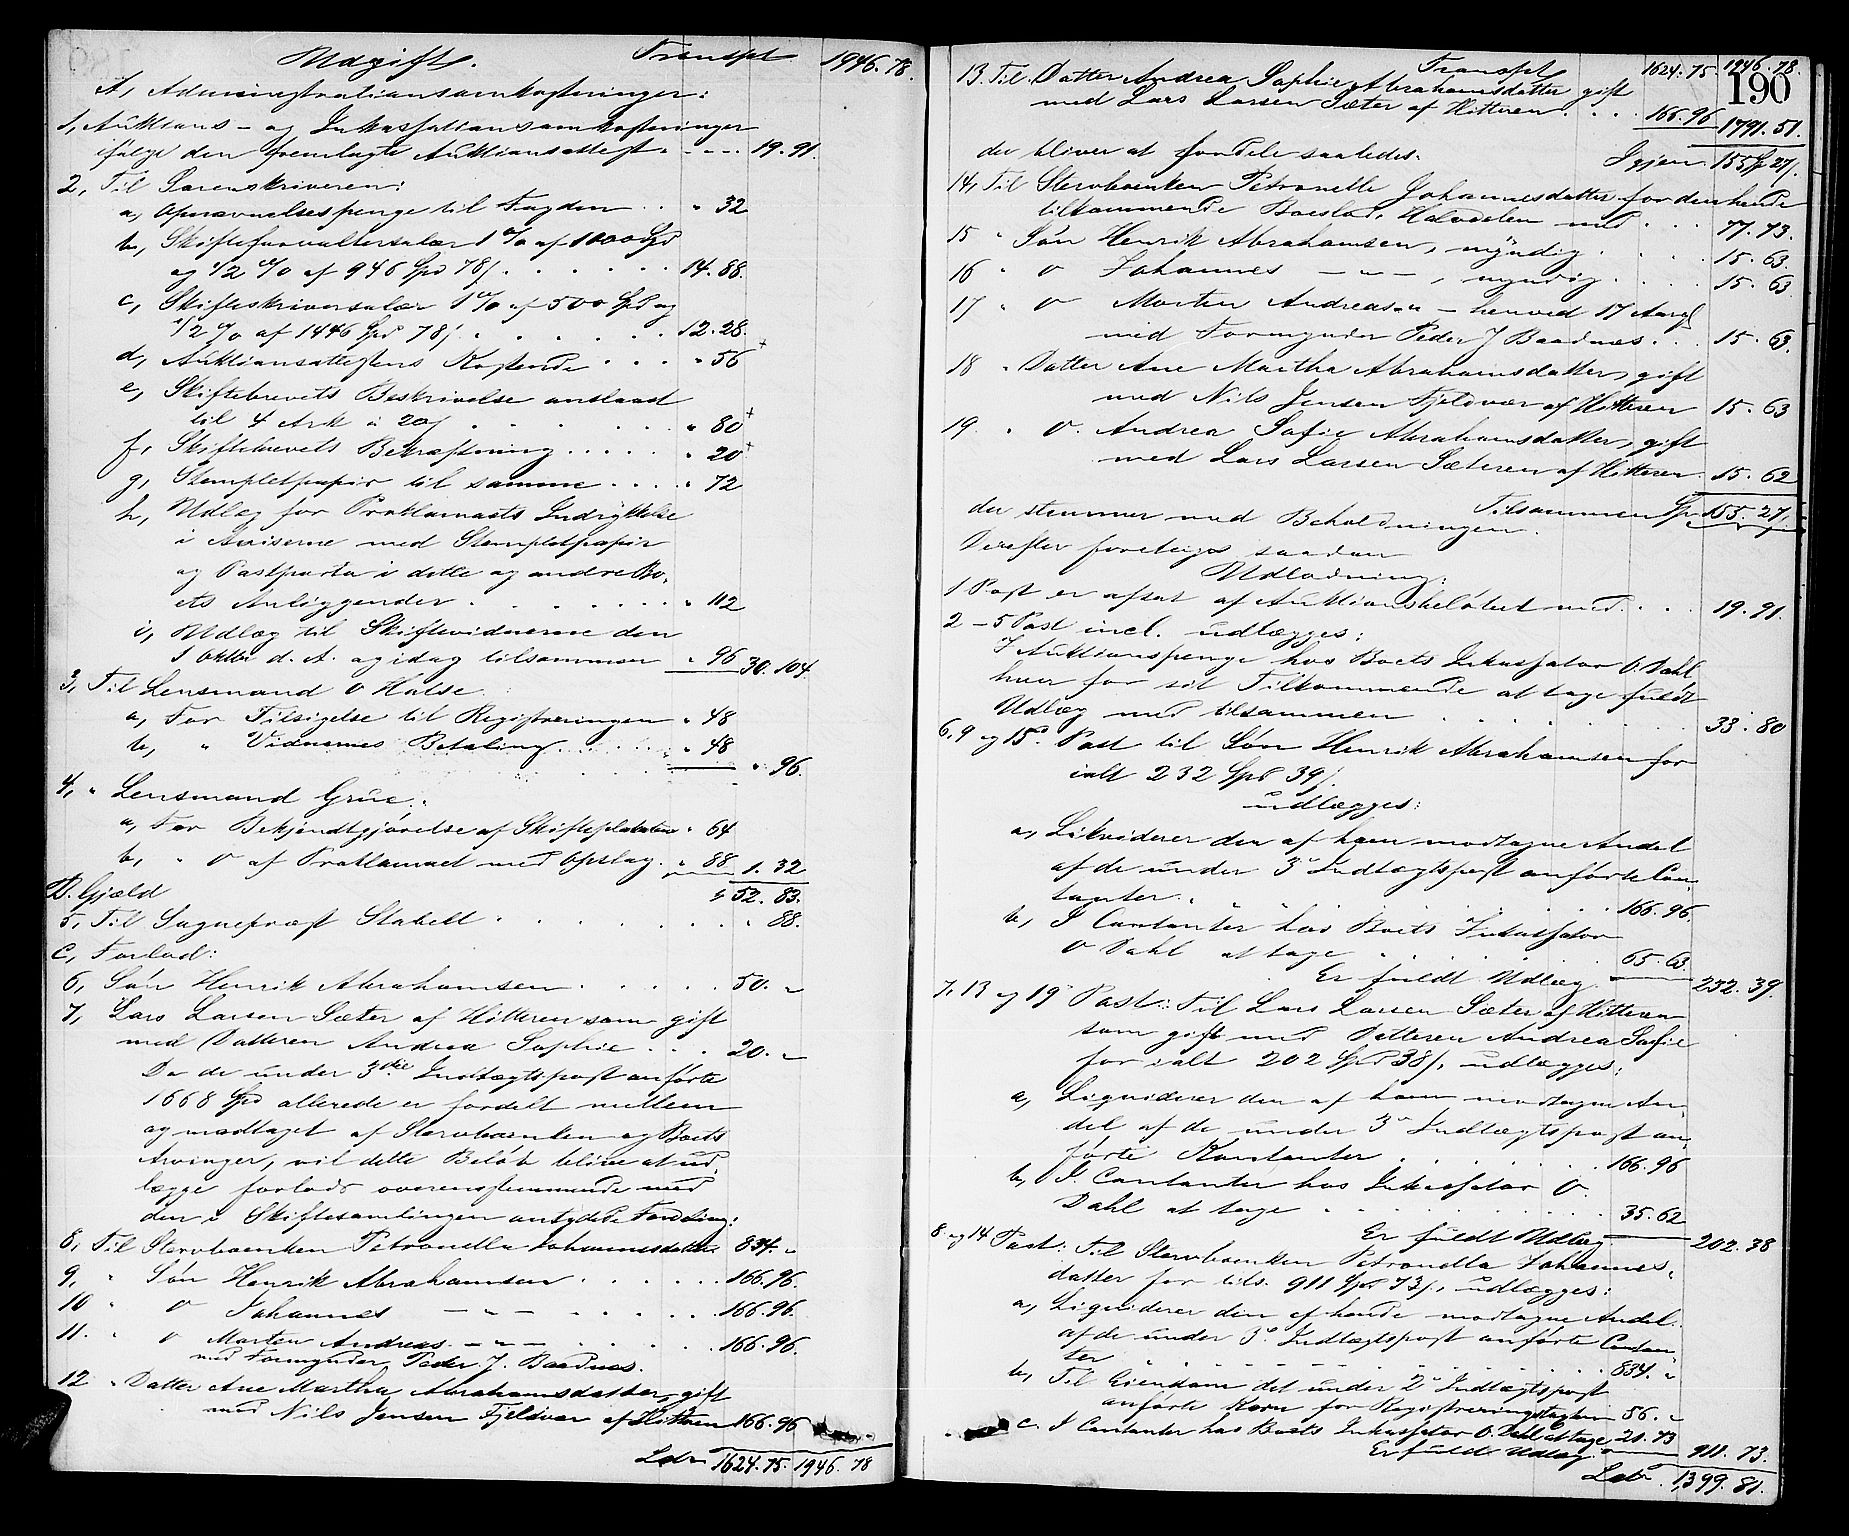 Udgift. Transpt 1946.78.
A, Administrationsomkostninger:
1, Auktions- og Inkassationsomkostninger
ifølge den fremlagte Auktionsattest . - - - . 19.91.
2, Til Sorenskriveren:
a, Opnævnelsespenge til Fogden . . " 32
b, Skifteforvaltersalær 1% af 1000 Spd
og 1/2 % af 946 Spd 78 s. . . . . . 14.88.
c, Skifteskriversalær 1% af 500 Spd og
1/2 % af 1446 Spd 78 s. . . . . . 12.28.
d, Auktionsattestens Kostende . . . " 56
e, Skiftebrevets Beskrivelse anslaaet
til 4 Ark à 20 s . . . . . . " 80
f, Skiftebrevets Bekræftning . . . . . " 20
g, Stempletpapir til samme . . . . " 72
h, Udlæg for Proklamaets Indrykkelse
i Aviserne med Stempletpapir
og Postporto i dette og andre Bo-
ets Anliggender . . . . . . . " 112
i, Udlæg til Skiftevidnerne den
1 Oktbr d. A. og idag tilsammen " 96 30.104
3, Til Lensmand O Halse:
a, For Tilsigelse til Registreringen " 48
b, " Vidnernes Betaling . . . . . " 48
" 96.
4, " Lensmand Grüe:
a, For Bekjendtgjørelse af Skifteplakaten " 64
b, " O af Proklamaet med Opslag . " 88 1.32
52.83.
B. Gjæld
5, Til Sogneprest Stabell . . . . . . . " 88.
C, Forlod:
6, Søn Henrik Abrahamsen . . . . . 50. "
7, Lars Larsen Sæter af Hitteren som gift
med Datteren Andrea Sophie . . . 20. "
Da de under 3die Indtægtspost anførte
1668 Spd allerede er fordelt mellem
og modtaget af Stervboenken og Boets
Arvinger, vil dette Beløb blive at ud-
lægge forlods overensstemmende med
den i Skiftesamlingen antydede Fordeling:
8, Til Stervboenken Petronella Johannesdatter 834. "
9, " Søn Henrik Abrahamsen . . . . . . 166.96.
10 " O Johannes - " - . . . . . 166.96.
11. " O Morten Andreas - " - . . . . . 166.96.
med Formynder Peder J. Baadnes.
12 " Datter Ane Martha Abrahamsdatter, gift
med Nils Jensen Fjeldvær af Hitteren 166.96
Lat. 1624.75. 1946.78
190
Transpt 1624.75. 1946.78.
13. Til Datter Andrea Sophie Abrahamsdatter gift
med Lars Larsen Sæter af Hitteren . . . . 166.96 1791.51.
Igjen 155 Sp 27 s.
der bliver at fordele saaledes.
14, Til Stervboenken Petronelle Johannesdatter for den hende
tilkommende Boeslods Halvdelen med . . . 77.73.
15 " Søn Henrik Abrahamsen, myndig . . . . 15.63
16 " O Johannes - " - , myndig . . . . 15.63
17 " O Morten Andreas - " - henved 17 Aar gl
med Formynder Peder J Baadnes . . . 15.63.
18 " Datter Ane Martha Abrahamsdatter, gift
med Nils Jensen Fjeldvær af Hitteren 15.63
19. " O. Andrea Sofie Abrahamsdatter, gift
med Lars Larsen Sæteren af Hitteren 15.62
Tilsammen Sp 155.27.
der stemmer med Beholdningen.
Derefter foretoges saadan
Udlodning:
1 Post er afsat af Auktionsbeløbet med . . . 19.91.
2 - 5 Post incl. udlægges:
I Auktionspenge hos Boets Inkassator O. Dahl
hver for sit Tilkommende at tage fuldt
Udlæg med tilsammen . . . . . . . . 33.80
6, 9 og 15d. Post til Søn Henrik Abrahamsen for
ialt 232 Spd 39 s.
udlægges:
a, Likviderer den af ham modtagne Andel
af de under 3e Indtægtspost anførte Con-
tanter . . . . . . . . . . 166.96.
b, I Contanter hos Boets Inkassator
O Dahl at tage . . . . . . 65.63.
Er fuldt Udlæg 232.39.
7, 13 og 19 Post: Til Lars Larsen Sæter af Hitteren
som gift med Datteren Andrea Sofie
for ialt 202 Spd 38 s. udlægges:
a, Liqviderer den af ham modtagne An-
del af de under 3e Indtægtspost an-
førte Kontanter . . . . . . . 166.96
b, I Contanter hos Inkassator O.
Dahl at tage . . . . . . . . . . 35.62
Er fuldt Udlæg 202.38
8 og 14 Post: Til Stervboenken Petronella Johannes-
datter for tils. 911 Spd 73 s. udlægges:
a, Liqviderer den af hende modtagne Andel
af de under 3e Indtægtspost anførte Contan-
ter - - - - - - - . . . . 834. "
b, Til Eiendom det under 2e Indtægtspost
anførte Korn for Registreringstaxten 56. "
c. I Contanter hos Boets Inkassator O. Dahl at tage 21.73
Er fuldt Udlæg 911.73.
Lat. 1399.81.